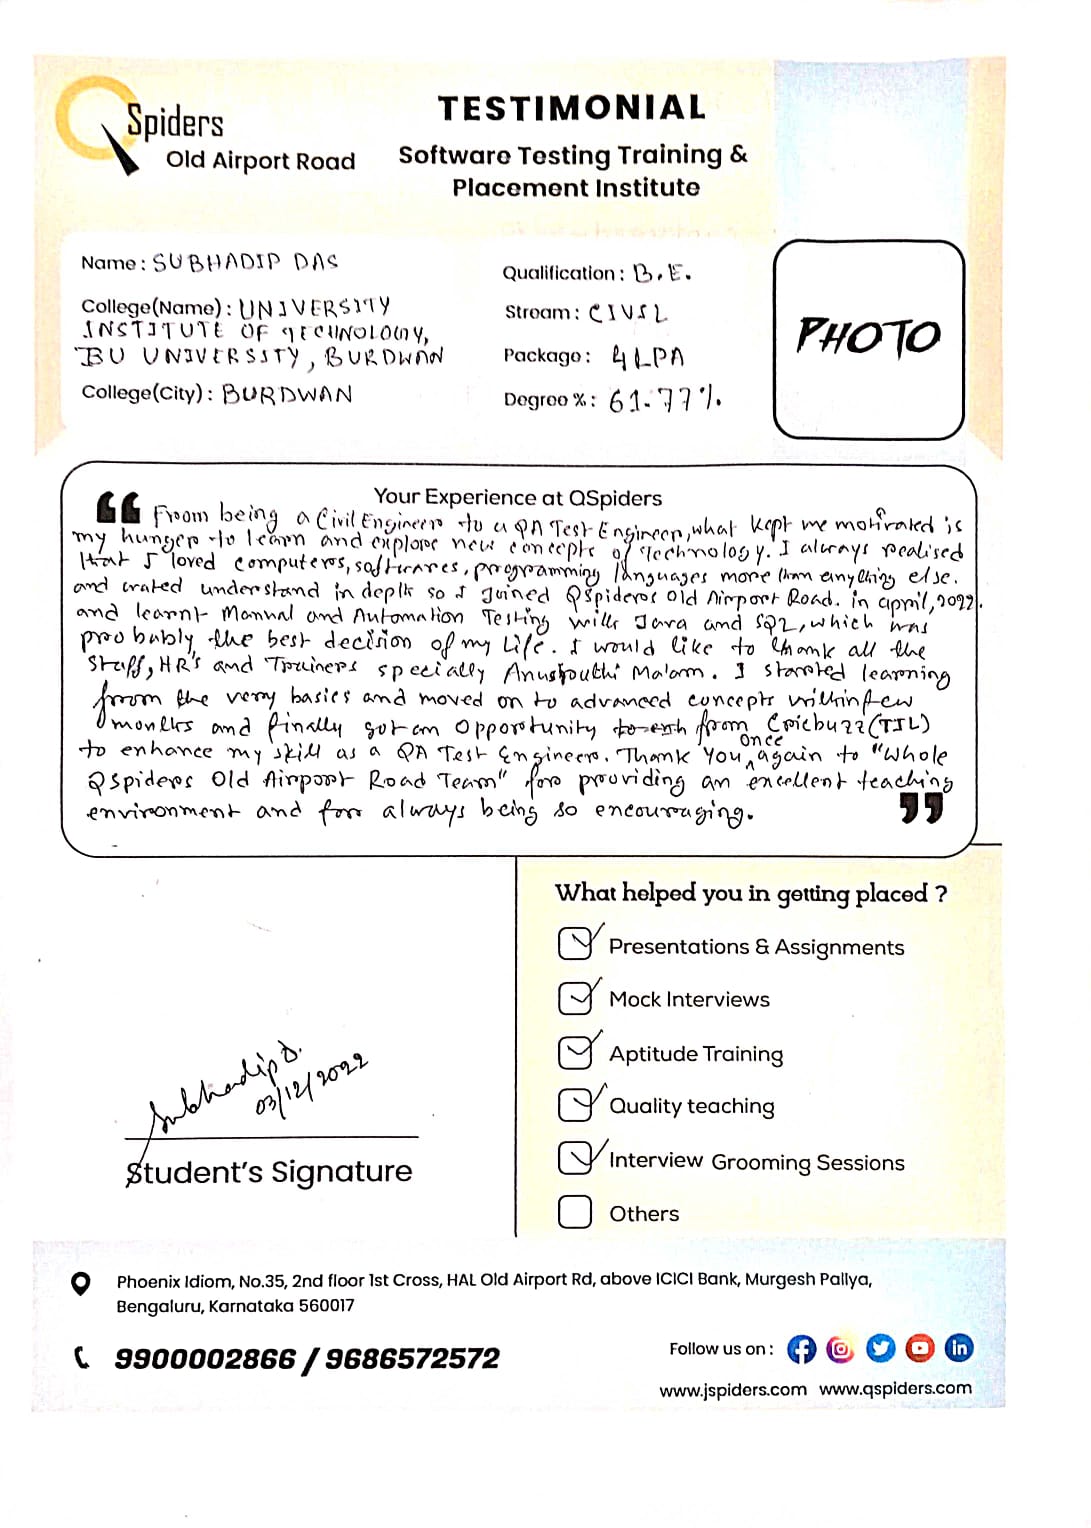 Spiders
Old Airport Road
TESTIMONIAL
Software Testing Training &
Placement Institute
Name : SUBHADIP DAS
College(Name) : UNIVERSITY
INSTITUTE OF TECHNOLOGY,
BU UNIVERSITY, BURDWAN
College(City) : BURDWAN
Qualification : B.E.
Stream : CIVIL
Package : 4 LPA
Degree % : 61.77%
PHOTO
Your Experience at QSpiders
From being a Civil Engineer to a QA Test Engineer, what kept me motivated is
my hunger to learn and explore new concepts of Technology. I always realised
that I loved computers, softwares, programming languages more than anything else.
and understand in depth so I joined QSpiders Old Airport Road. in april, 2022.
and learnt Manual and Automation Testing with Java and SQL, which was
probably the best decision of my Life. I would like to thank all the
Staff, HR's and Trainers specially Anushouthi Ma'am. I started learning
from the very basics and moved on to advanced concepts within few
months and finally got an Opportunity from Cricbuzz (TIL)
to enhance my skill as a QA Test Engineer. Thank You once again to "Whole
QSpiders Old Airport Road Team" for providing an excellent teaching
environment and for always being so encouraging.
What helped you in getting placed ?
Presentations & Assignments
Mock Interviews
Aptitude Training
Quality teaching
Interview Grooming Sessions
Others
Subhadip D.
03/12/2022
Student's Signature
Phoenix Idiom, No.35, 2nd floor 1st Cross, HAL Old Airport Rd, above ICICI Bank, Murgesh Pallya,
Bengaluru, Karnataka 560017
9900002866 / 9686572572
Follow us on :
www.jspiders.com www.qspiders.com